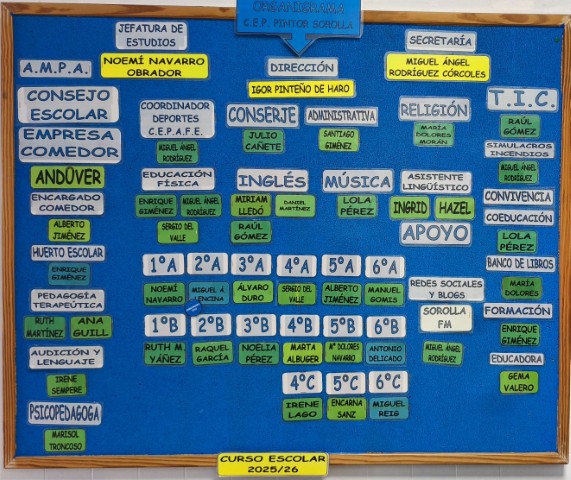 ORGANIGRAMA
C.E.P. PINTOR SOROLLA
JEFATURA DE
ESTUDIOS
NOEMÍ NAVARRO
OBRADOR
DIRECCIÓN
IGOR PINTEÑO DE HARO
SECRETARÍA
MIGUEL ÁNGEL
RODRÍGUEZ CÓRCOLES
A.M.P.A.
CONSEJO
ESCOLAR
EMPRESA
COMEDOR
ANDÚVER
ENCARGADO
COMEDOR
ALBERTO
JIMÉNEZ
HUERTO ESCOLAR
ENRIQUE
GIMÉNEZ
PEDAGOGÍA
TERAPEÚTICA
RUTH
MARTÍNEZ
ANA
GUILL
AUDICIÓN Y
LENGUAJE
IRENE
SEMPERE
PSICOPEDAGOGA
MARISOL
TRONCOSO
COORDINADOR
DEPORTES
C.E.P.A.F.E.
MIGUEL ÁNGEL
RODRÍGUEZ
CONSERJE
JULIO
CAÑETE
ADMINISTRATIVA
SANTIAGO
GIMÉNEZ
RELIGIÓN
MARÍA
DOLORES
MORÁN
EDUCACIÓN
FÍSICA
ENRIQUE
GIMÉNEZ
MIGUEL ÁNGEL
RODRÍGUEZ
SERGIO DEL
VALLE
INGLÉS
MIRIAM
LLEDÓ
DANIEL
MARTÍNEZ
RAÚL
GÓMEZ
MÚSICA
LOLA
PÉREZ
ASISTENTE
LINGÜÍSTICO
INGRID
HAZEL
APOYO
1ºA
2ºA
3ºA
4ºA
5ºA
6ºA
NOEMÍ
NAVARRO
MIGUEL A
LENCINA
ÁLVARO
DURO
SERGIO DEL
VALLE
ALBERTO
JIMÉNEZ
MANUEL
GOMIS
1ºB
2ºB
3ºB
4ºB
5ºB
6ºB
RUTH M
YÁÑEZ
RAQUEL
GARCÍA
NOELIA
PÉREZ
MARTA
ALBUGER
Mª DOLORES
NAVARRO
ANTONIO
DELICADO
4ºC
5ºC
6ºC
IRENE
LAGO
ENCARNA
SANZ
MIGUEL
REIG
REDES SOCIALES
Y BLOGS
SOROLLA
FM
MIGUEL ÁNGEL
RODRÍGUEZ
T.I.C.
RAÚL
GÓMEZ
SIMULACROS
INCENDIOS
MIGUEL ÁNGEL
RODRÍGUEZ
CONVIVENCIA
COEDUCACIÓN
LOLA
PÉREZ
BANCO DE LIBROS
MARÍA
DOLORES
FORMACIÓN
ENRIQUE
GIMÉNEZ
EDUCADORA
GEMA
VALERO
CURSO ESCOLAR
2025/26